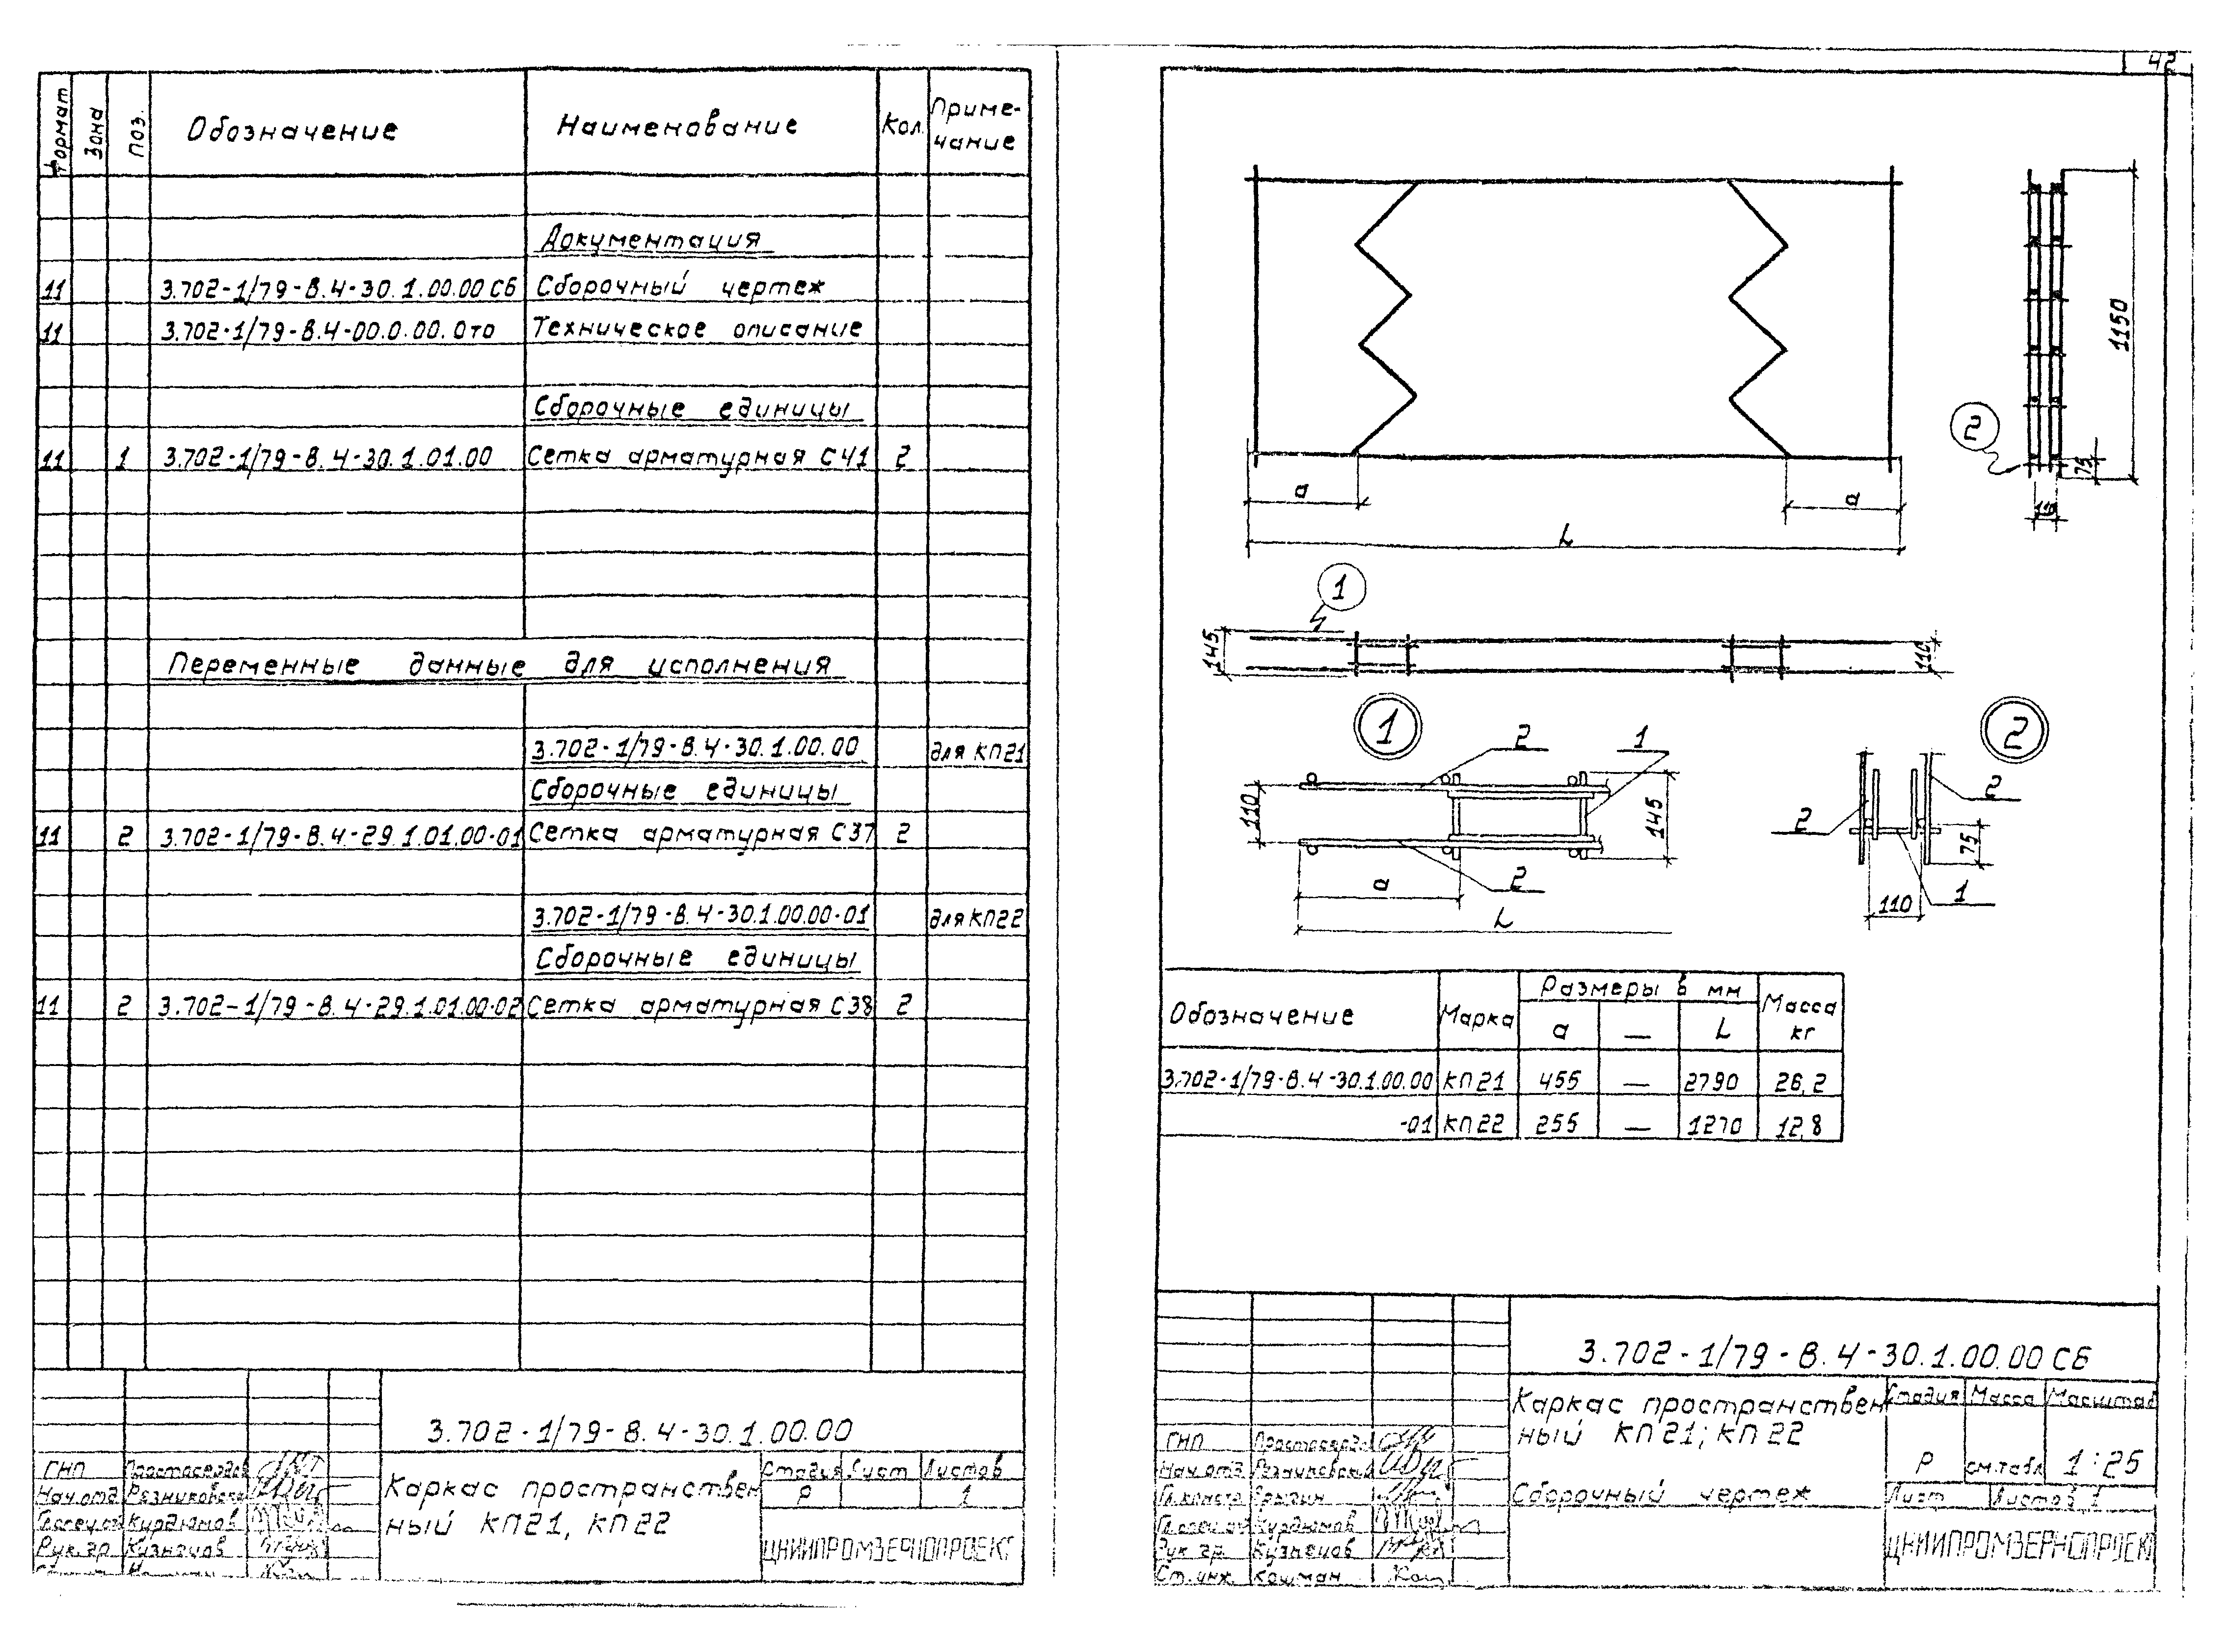 Формат Зона Поз. Обозначение Наименование Кол. Приме-
чание
Документация
11 3.702-1/79-В.4-30.1.00.00 СБ Сборочный чертеж
11 3.702-1/79-В.4-00.0.00.0то Техническое описание
Сборочные единицы
11 1 3.702-1/79-В.4-30.1.01.00 Сетка арматурная С41 2
Переменные данные для исполнения
3.702-1/79-В.4-30.1.00.00 для КП21
Сборочные единицы
11 2 3.702-1/79-В.4-29.1.01.00-01 Сетка арматурная С37 2
3.702-1/79-В.4-30.1.00.00-01 для КП22
Сборочные единицы
11 2 3.702-1/79-В.4-29.1.01.00-02 Сетка арматурная С38 2
3.702-1/79-В.4-30.1.00.00
ГНП
Нач.отд.
Рук.гр. Кузнецов
Курдюмов
Каркас пространствен
ный КП21, КП22
Стадия Лист Листов
Р 1
ЦНИИПРОМЗЕРНОПРОЕКТ
42
a
a
L
1150
75
110
2
1
145
110
1
2
2 1
110
145
2
a
L
2
2
75
1
110
Обозначение Марка Размеры в мм Масса
кг
a — L
3.702-1/79-В.4-30.1.00.00 КП21 455 — 2790 26,2
-01 КП22 255 — 1270 12,8
3.702-1/79-В.4-30.1.00.00 СБ
Каркас пространствен
ный КП21; КП22
Сборочный чертеж
Стадия Масса Масштаб
Р см.табл 1:25
Лист Листов 1
ЦНИИПРОМЗЕРНОПРОЕКТ
ГНП
Нач.отд.
Гл.констр.
Курдюмов
Рук.гр. Кузнецов
Ст.инж. Кошман